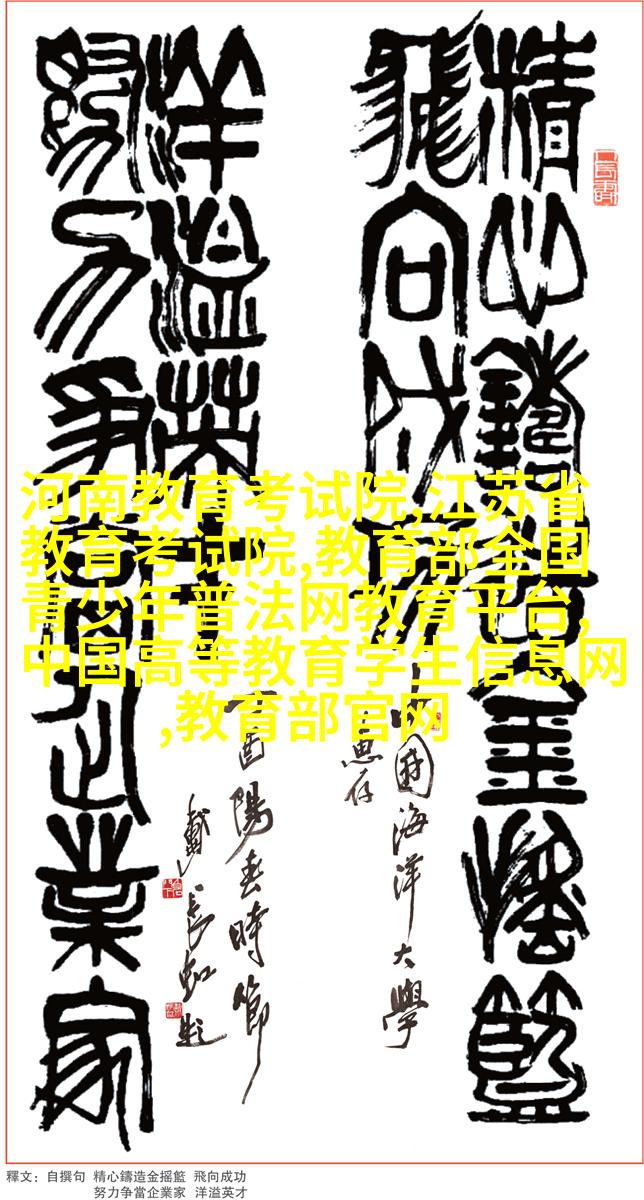 精心鑄造金搖籃
飛向成功
中國海洋大學
惠存
努力爭當企業家
洋溢英才
丁酉陽春時節
戴長虹題
河南教育考试院,江苏省
教育考试院,教育部全国
青少年普法网教育平台,
中国高等教育学生信息网
,教育部官网
釋文：自撰句 精心鑄造金摇籃 飛向成功
努力争當企業家 洋溢英才